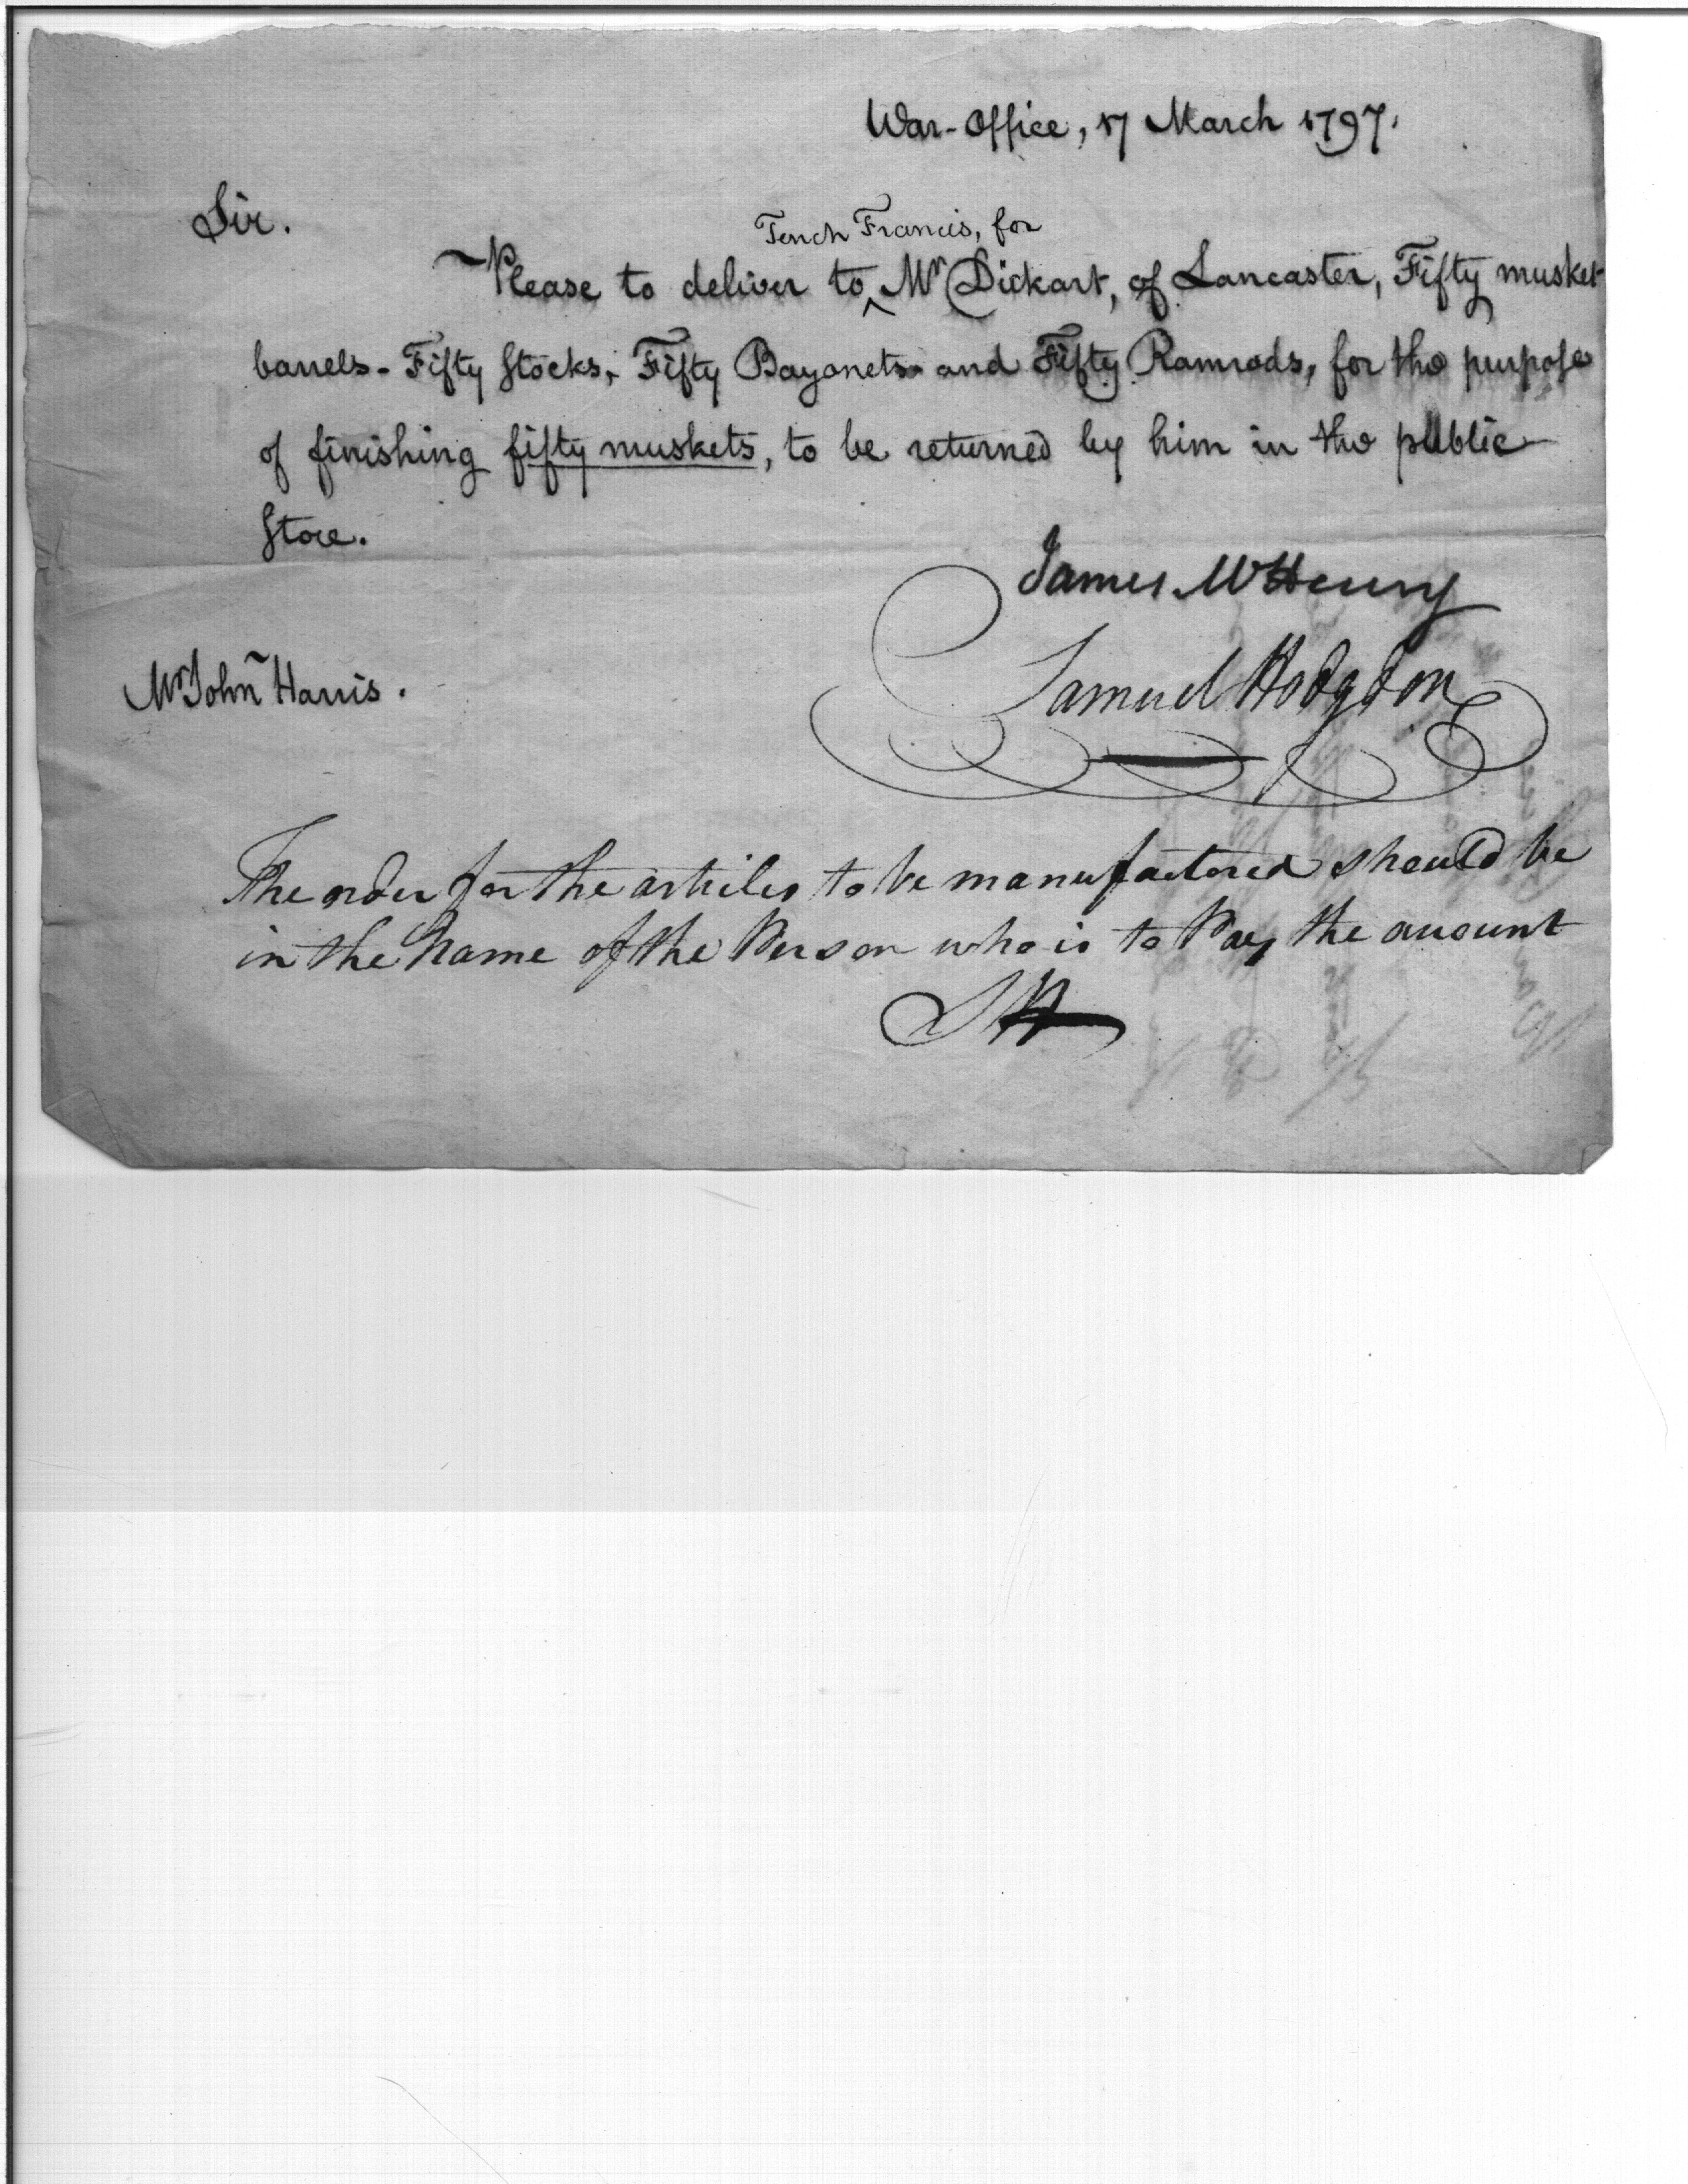 War-Office, 17 March 1797.
Sir.
Tench Francis, for
Please to deliver to ^ Mr Dickart, of Lancaster, Fifty musket
barrels - Fifty Stocks, Fifty Bayonets and Fifty Ramrods, for the purpose
of finishing fifty muskets, to be returned by him in the public
Store.
James McHenry
Samuel Hodgdon
Mr John Harris.
The order for the articles to be manufactored should be
in the Name of the Person who is to Pay the amount
SH